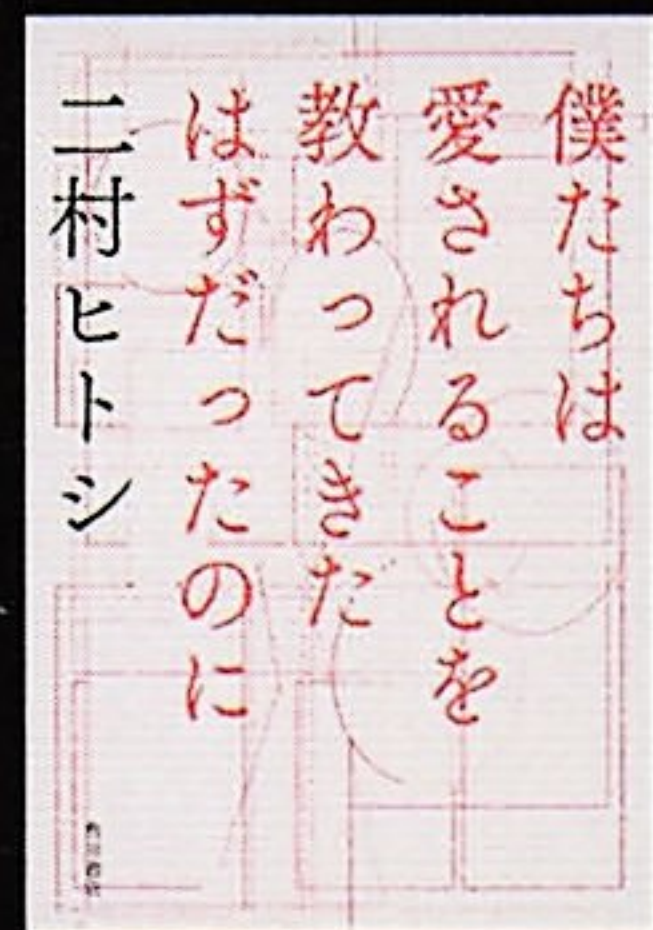 僕たちは
愛されることを
教わってきた
はずだったのに
二村ヒトシ
角川書店